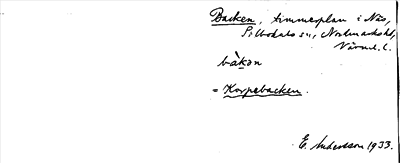 Backen, timmerplan i Näs,
S. Ulvdals sn, Nordmarks hd,
Värml. l.
bàkɔn
= Korpebacken.
E. Andersson 1933.